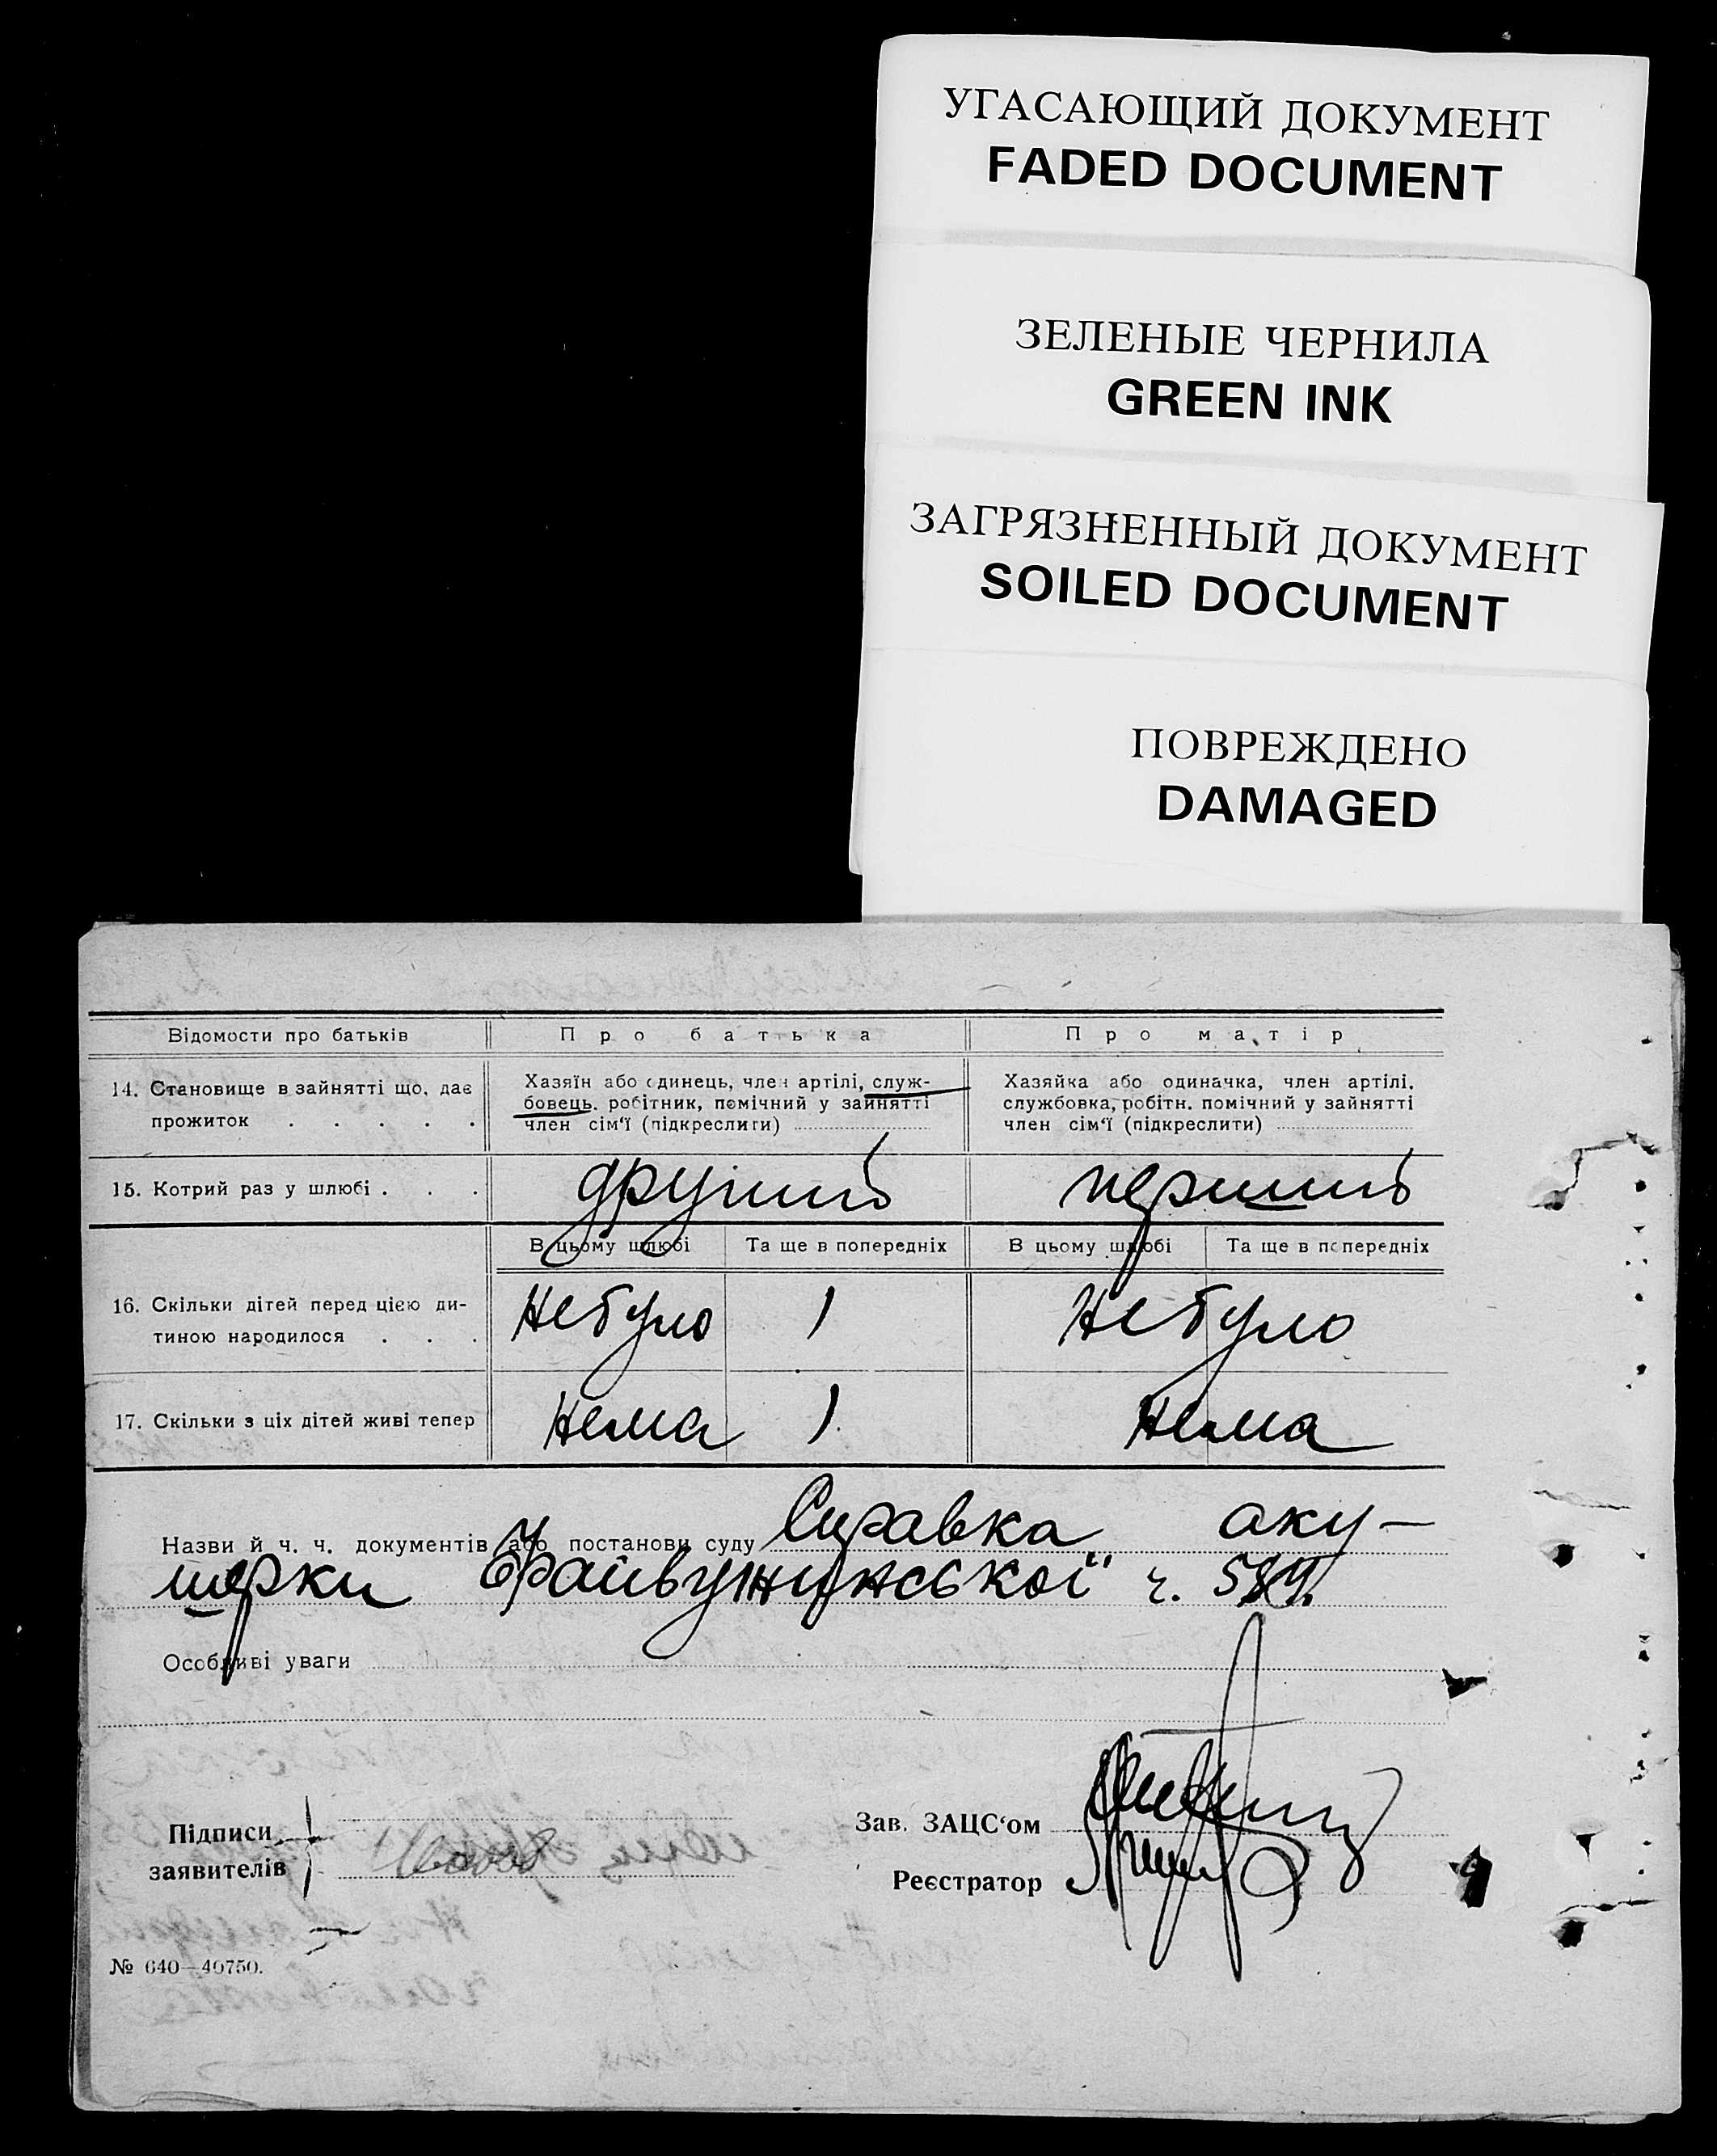 УГАСАЮЩИЙ ДОКУМЕНТ
FADED DOCUMENT
ЗЕЛЕНЫЕ ЧЕРНИЛА
GREEN INK
ЗАГРЯЗНЕННЫЙ ДОКУМЕНТ
SOILED DOCUMENT
ПОВРЕЖДЕНО
DAMAGED
Відомости про батьків Про батька Про матір
14. Становище в зайнятті що, дає прожиток . . . . .
Хазяїн або єдинець, член артілі, служ-
бовець, робітник, помічний у зайнятті
член сім'ї (підкреслити)
Хазяйка або одиначка, член артілі,
службовка, робітн. помічний у зайнятті
член сім'ї (підкреслити)
15. Котрий раз у шлюбі . . . другий перший
В цьому шлюбі Та ще в попередніх В цьому шлюбі Та ще в попередніх
16. Скільки дітей перед цією ди-
тиною народилося . . . Не було 1 Не було
17. Скільки з ціх дітей живі тепер Нема 1 Нема
Назви й ч. ч. документів або постанови суду Справка аку-
шерки ч.
Особливі уваги
Підписи
заявителів
Зав. ЗАЦС'ом
Реєстратор
№ 640—40750.